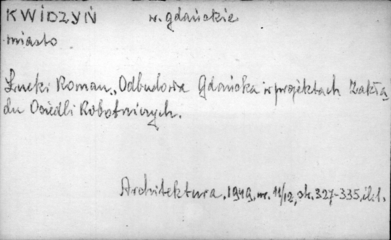 KWIDZYŃ w. gdańskie
miasto
Roman, Odbudowa Gdańska w projektach Zakła
du Osiedli Robotniczych.
Architektura, 1949, nr. 11/12, str. 327-335, il.